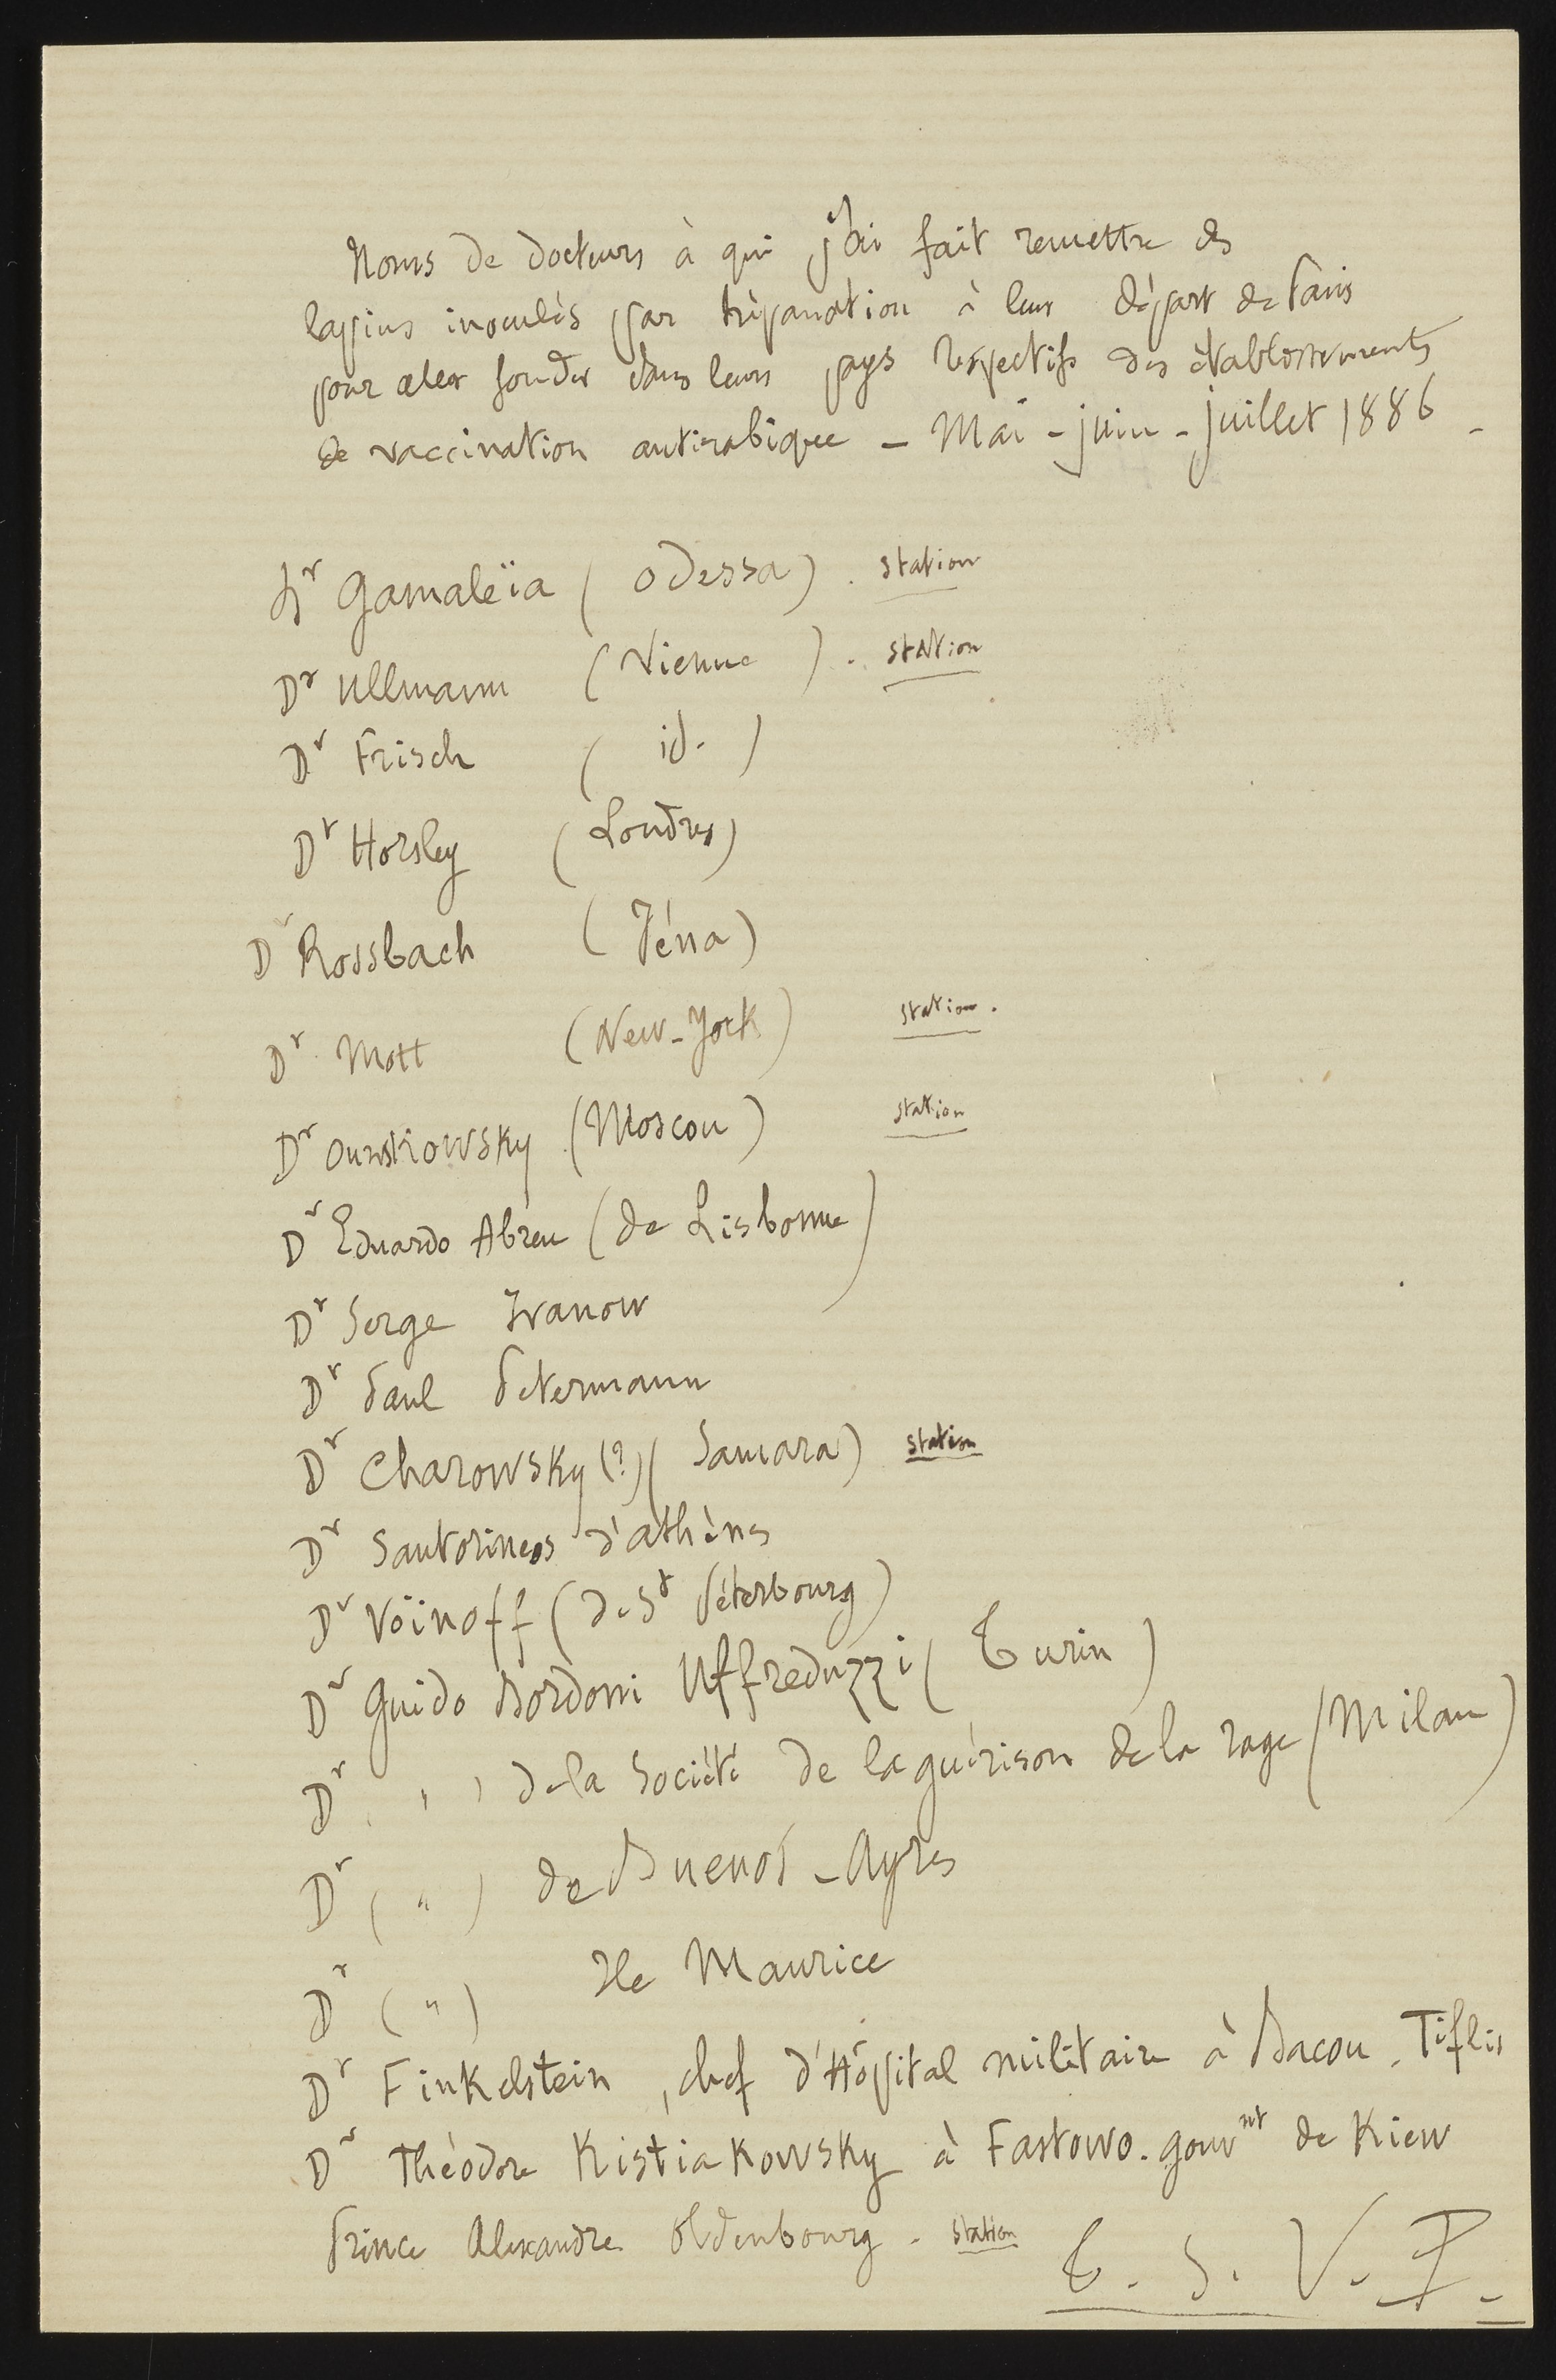 Noms de docteurs à qui j'ai fait remettre des
lapins inoculés par trépanation à leur départ de Paris
pour aller fonder dans leurs pays respectifs des établissements
de vaccination antirabique – Mai – juin – juillet 1886 –
Dr Gamaleïa (Odessa). station
Dr Ullmann (Vienne). station
Dr Frisch (id.)
Dr Horsley (Londres)
Dr Rossbach (Jéna)
Dr Mott (New-York) station.
Dr Ounskowsky (Moscou) station
Dr Eduardo Abreu (de Lisbonne)
Dr Serge Ivanow
Dr Paul Petermann
Dr Charowsky (?) (Samara) station
Dr Santorineos d'athènes
Dr Voïnoff (de St Péterbourg)
Dr Guido Bordoni Uffreduzzi (Turin)
Dr ( " ) de la Société de la guérison de la rage (Milan)
Dr ( " ) de Buenos-Ayres
Dr ( " ) Ile Maurice
Dr Finkelstein, chef d'Hôpital militaire à Bacou. Tiflis
Dr Théodore Kistiakowsky à Fastowo. gouvnt de Kiew
Prince Alexandre Oldenbourg. station T. S. V. P.